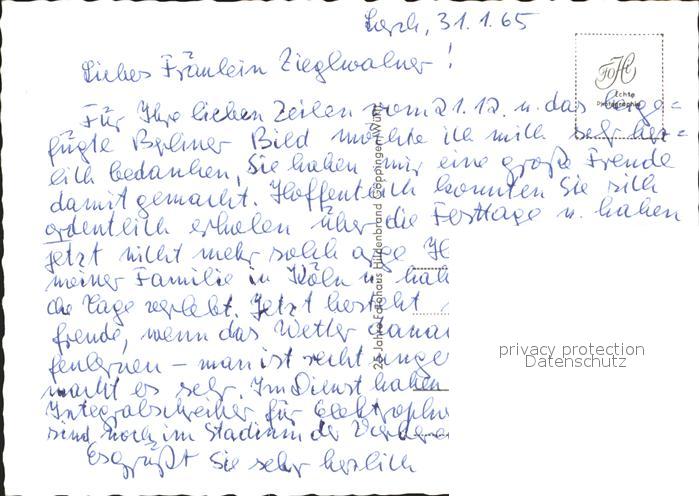 Lorch, 31.1.65
Liebes Fräulein Zieglwalner!
Für Ihre lieben Zeilen vom 21.12. u. das beige=
fügte Berliner Bild möchte ich mich sehr herz=
lich bedanken, Sie haben mir eine große Freude
damit gemacht. Hoffentlich konnten Sie sich
ordentlich erholen über die Festtage u. haben
jetzt nicht mehr solch arge
meiner Familie in Köln u.
che Tage verlebt. Jetzt besteht
freude, wenn das Wetter
fenlernen – man ist recht
macht es sehr. Im Dienst haben
Integralschreiber für
sind noch im Stadium der
Es grüßt Sie sehr herzlich
ToHi
Echte
Photographie
25 Jahre Fotohaus Hildenbrand Göppingen/Württ.
privacy protection
Datenschutz